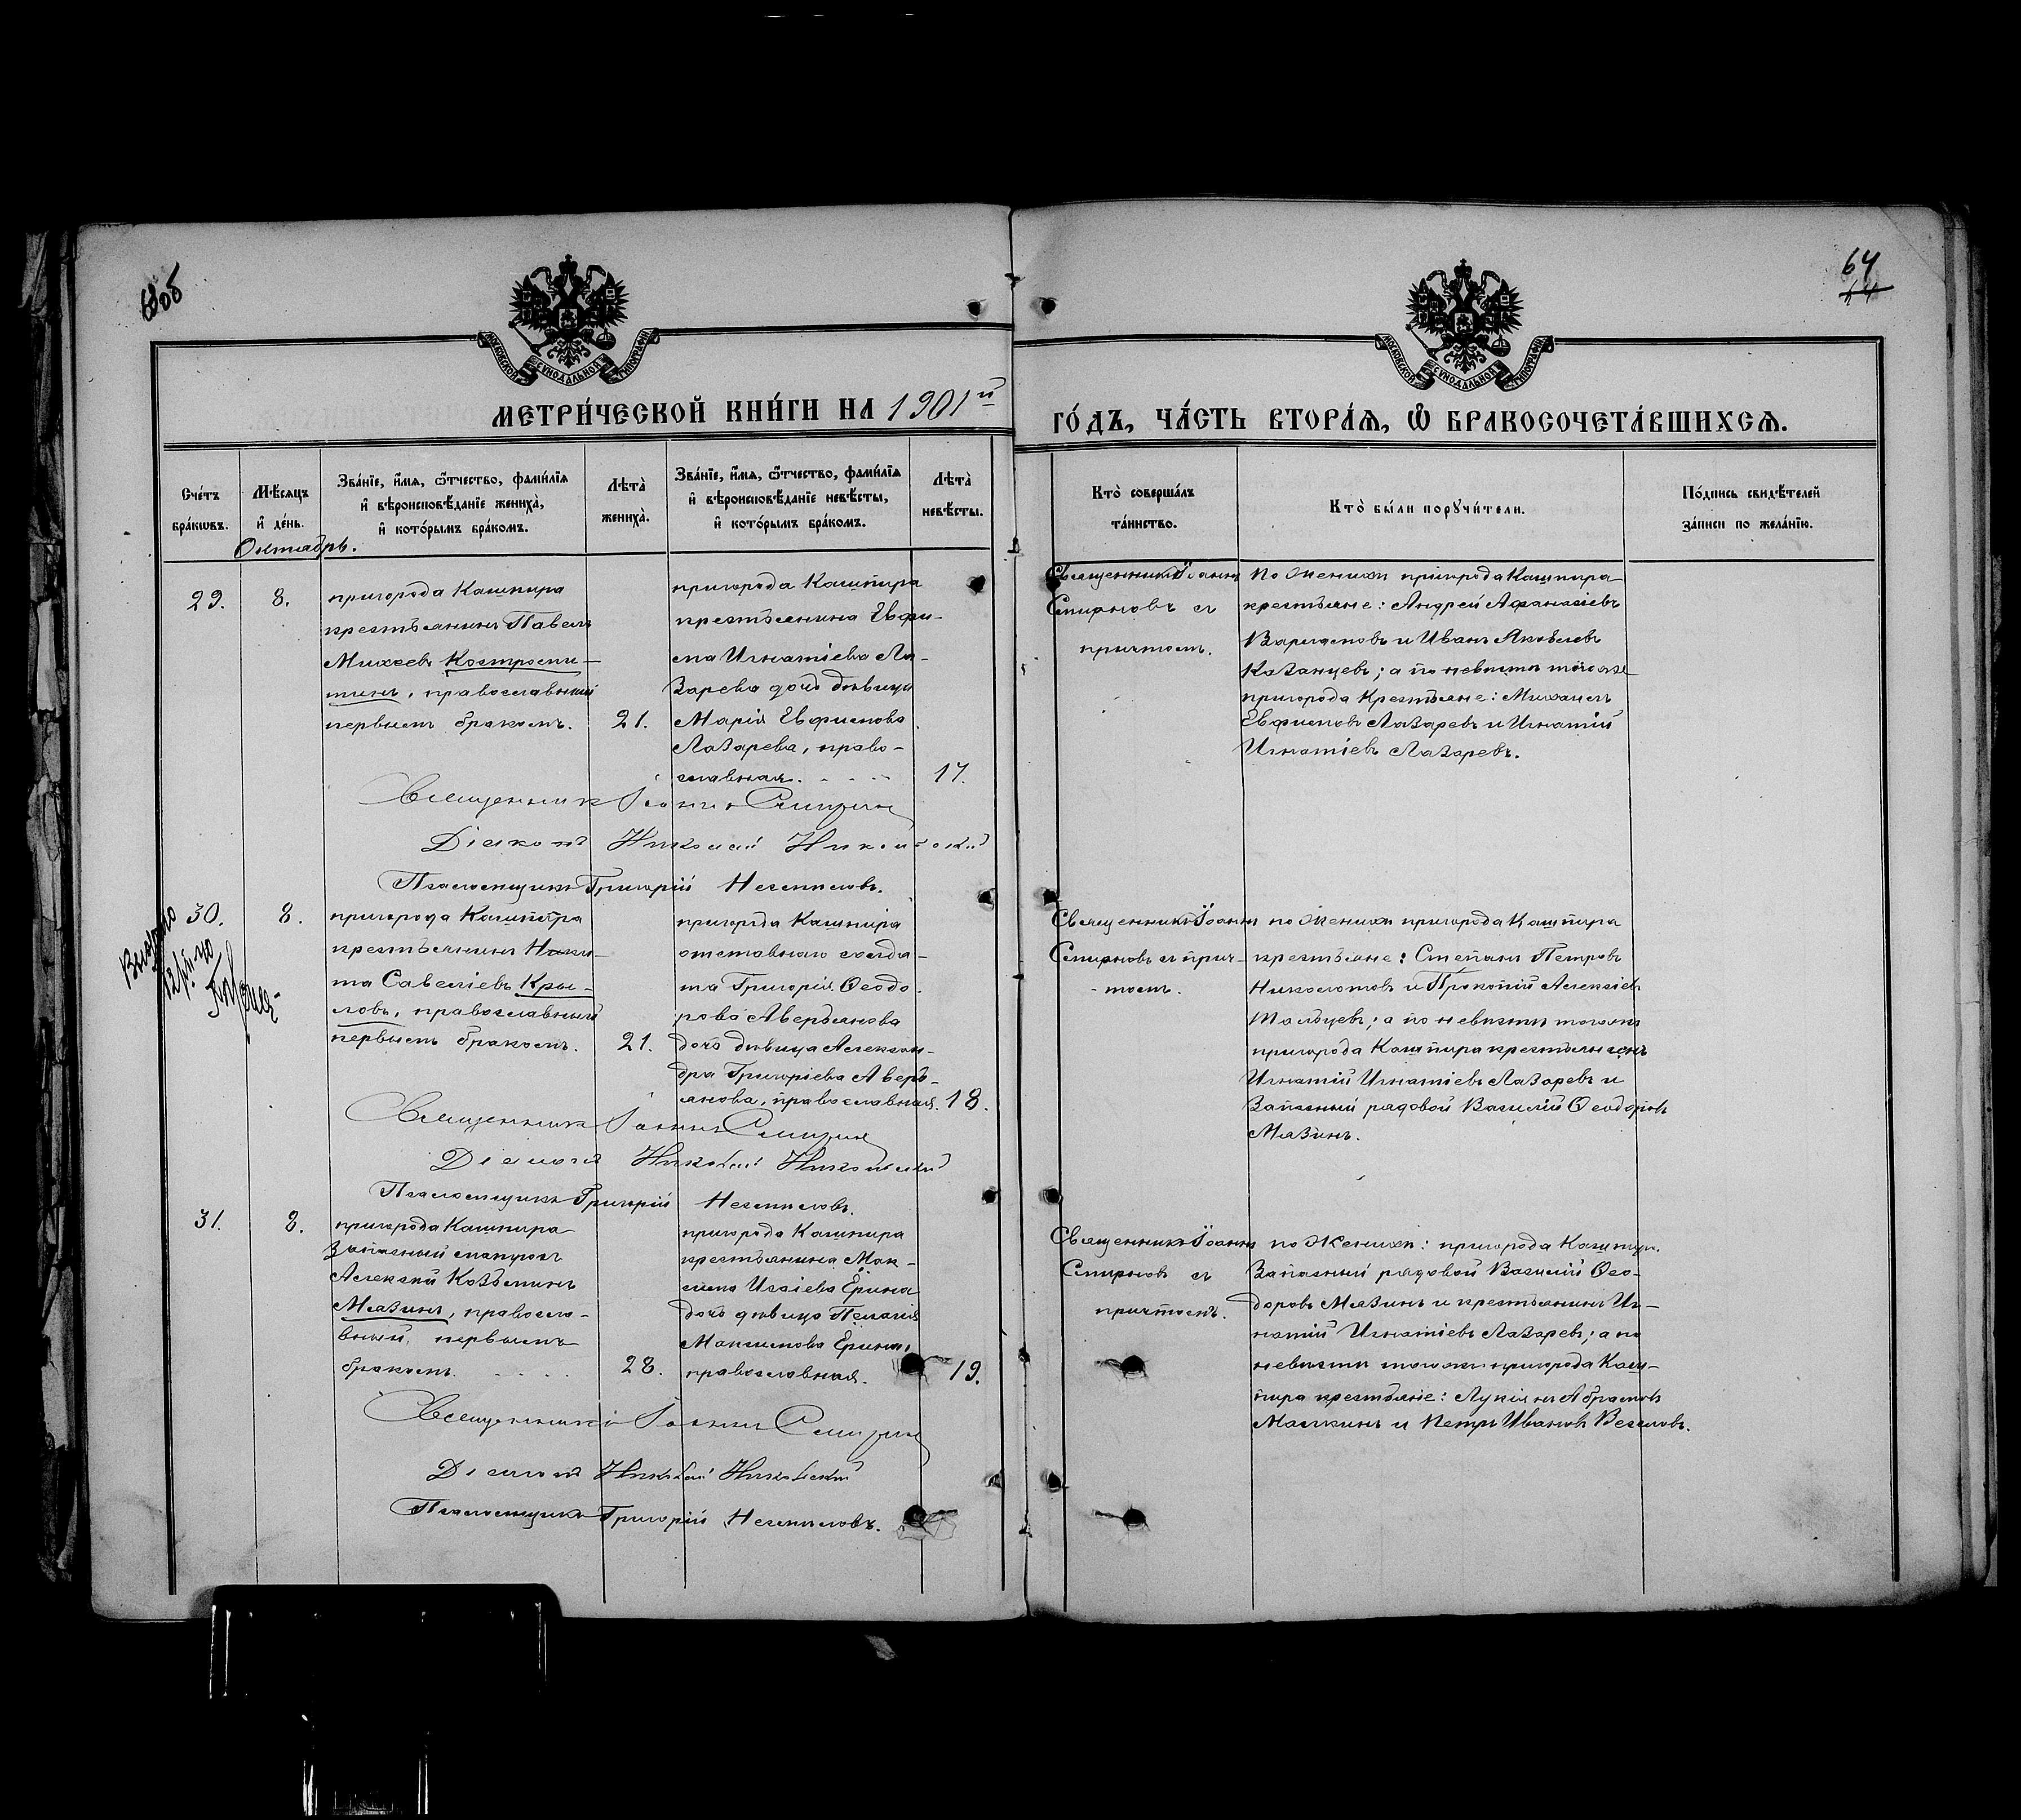 63об
64
64
МОСКОВСКОЙ СѴНОДАЛЬНОЙ ТИПОГРАФІИ
МОСКОВСКОЙ СѴНОДАЛЬНОЙ ТИПОГРАФІИ
МЕТРИ́ЧЕСКОЙ КНИ́ГИ НА 1901й
ГО́ДЪ, ЧА́СТЬ ВТОРА́Ѧ, Ѡ҆ БРАКОСОЧЕТА́ВШИХСѦ.
Сче́тъ
бра́кѡвъ.
Мѣ́сѧцъ
и҆ де́нь.
Зва́нїе, и҆́мѧ, ѻ҆́тчество, фами́лїѧ
и҆ вѣроисповѣ́данїе жениха̀,
и҆ кото́рымъ бра́комъ.
Лѣта̀
жениха̀.
Зва́нїе, и҆́мѧ, ѻ҆́тчество, фами́лїѧ
и҆ вѣроисповѣ́данїе невѣ́сты,
и҆ кото́рымъ бра́комъ.
Лѣта̀
невѣ́сты.
Кто̀ соверша́лъ
та́инство.
Кто̀ бы́ли порꙋчи́тели.
По́дпись свидѣ́телей
за́писи по жела́нїю.
Октябрь.
29.
8.
пригорода Кашпира
крестьянинъ Павелъ
Михеевъ Костроми-
тинъ, православный
первымъ бракомъ.
21.
пригорода Кашпира
крестьянина Евфи-
ма Игнатіева Ла-
зарева дочь дѣвица
Марія Евфимова
Лазарева, право-
славная.
17.
Священникъ Іоаннъ
Смирновъ съ
причтомъ.
По женихѣ пригорода Кашпира
крестьяне: Андрей Афанасіевъ
Варламовъ и Иванъ Яковлевъ
Казанцевъ; а по невѣстѣ того же
пригорода крестьяне: Михаилъ
Евфимовъ Лазаревъ и Игнатій
Игнатіевъ Лазаревъ.
Священникъ Іоаннъ Смирновъ
Діаконъ Николай Никольскій
Псаломщикъ Григорій Несмеловъ.
Выдано
30.
8.
пригорода Кашпира
крестьянинъ Ники-
та Савеліевъ Кры-
ловъ, православный
первымъ бракомъ.
21.
пригорода Кашпира
отставного солда-
та Григорія Ѳеодо-
рова Аверьянова
дочь дѣвица Алексан-
дра Григоріева Аверь-
янова, православная.
18.
Священникъ Іоаннъ
Смирновъ съ прич-
томъ.
по женихѣ пригорода Кашпира
крестьяне: Степанъ Петровъ
и Прокопій Алексіевъ
Мальцевъ; а по невѣстѣ того же
пригорода Кашпира крестьянинъ
Игнатій Игнатіевъ Лазаревъ и
Запасный рядовой Василій Ѳеодоровъ
Мазинъ.
Священникъ Іоаннъ Смирновъ
Діаконъ Николай Никольскій
Псаломщикъ Григорій Несмеловъ.
31.
8.
пригорода Кашпира
Запасный
Алексѣй Козьминъ
Мазинъ, правосла-
вный, первымъ
бракомъ.
28.
пригорода Кашпира
крестьянина Мак-
сима Исаіева Ерина
дочь дѣвица Пелагія
Максимова Ерина,
православная.
19.
Священникъ Іоаннъ
Смирновъ съ
причтомъ.
по женихѣ: пригорода Кашпира
Запасный рядовой Василій Ѳео-
доровъ Мазинъ и крестьянинъ Иг-
натій Игнатіевъ Лазаревъ; а по
невѣстѣ того же пригорода Каш-
пира крестьяне: Лукіянъ Абрамовъ
Маскинъ и Петръ Ивановъ Веселовъ.
Священникъ Іоаннъ Смирновъ
Діаконъ Николай Никольскій
Псаломщикъ Григорій Несмеловъ.